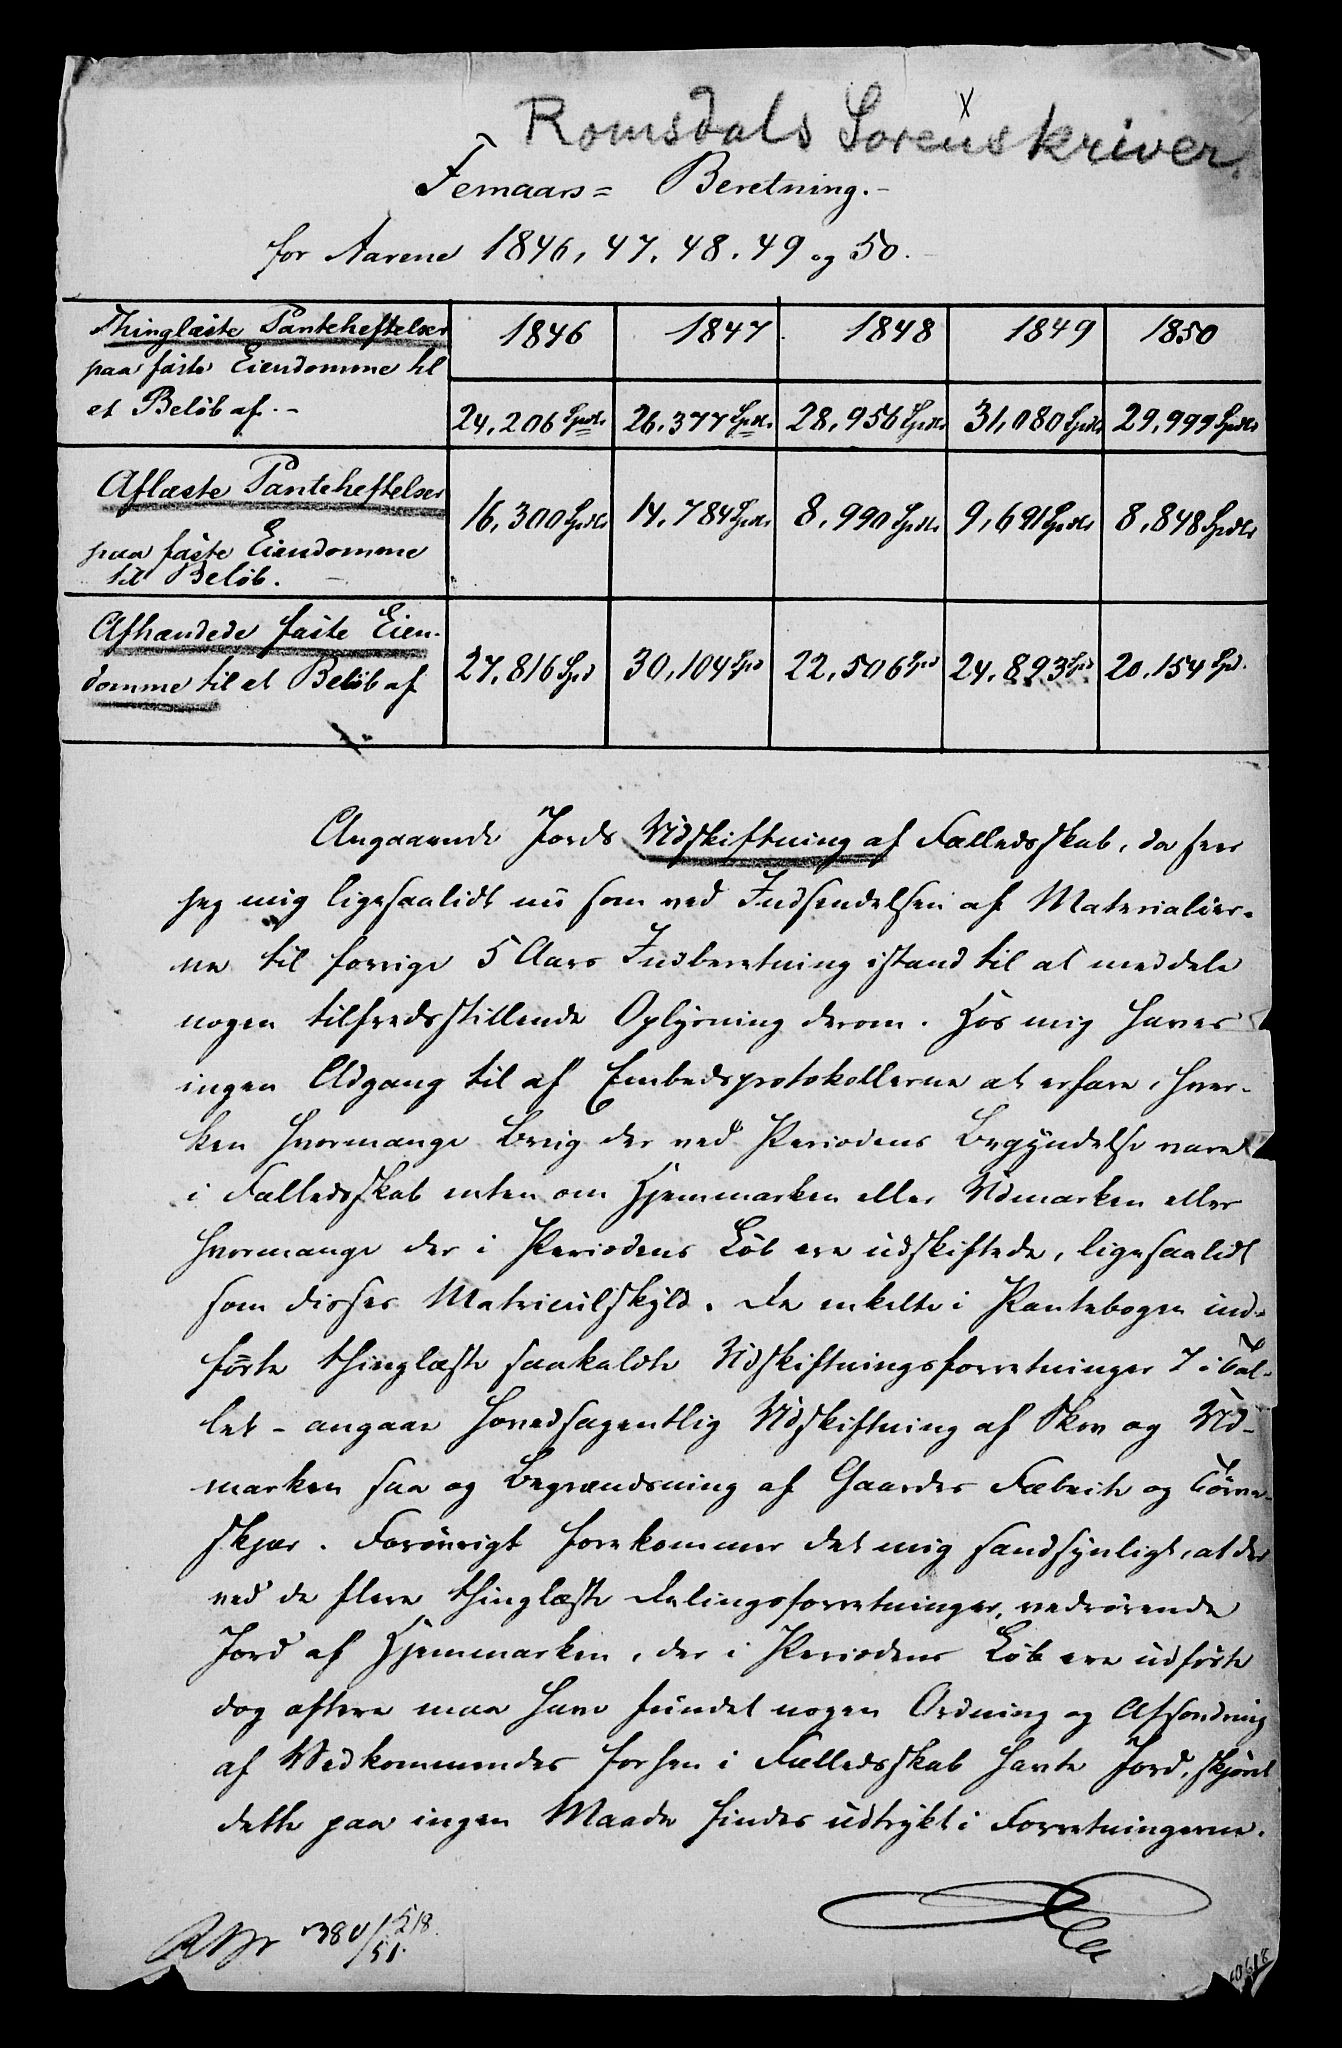 Romsdals Sorenskriver.
Femaars= Beretning.-
for Aarene 1846, 47, 48, 49 og 50.
Thinglæste Panteheftelser paa faste Eiendomme til et Beløb af.- 1846 1847 1848 1849 1850
24,206 Spdlr 26,377 Spdlr 28,956 Spdlr 31,080 Spdlr 29,999 Spdlr
Aflæste Panteheftelser paa faste Eiendomme til Beløb. 16,300 Spdlr 14,784 Spdlr 8,990 Spdlr 9,691 Spdlr 8,848 Spdlr
Afhændede faste Eiendomme til et Beløb af 27,816 Spd 30,104 Spd 22,506 Spd 24,893 Spd 20,154 Spd.
Angaaende Jords Udskiftning af Fælledsskab, da seer
jeg mig ligesaalidt nu som ved Indsendelsen af Materialier-
ne til forrige 5 Aars Indberetning istand til at meddele
nogen tilfredsstillende Oplysning derom. Hos mig haves
ingen Adgang til af Embedsprotokollerne at erfare, hver-
ken hvormange Brug der ved Periodens Begyndelse vare
i Fælledsskab enten om Hjemmarken eller Udmarken eller
hvormange der i Periodens Løb ere udskiftede, ligesaalidt
som disses Matriculskyld. De enkelte i Pantebogen ind-
førte thinglæste saakaldte Udskiftningsforretninger 7 i Tal-
let - angaae hovedsagentlig Udskiftning af Skov og Ud-
marken saa og Begrændsning af Gaardes Fæbeite og Tørve-
skjær. Forøvrigt forekommer det mig sandsynligt, at der
ved de flere thinglæste Delingsforretninger, vedrørende
Jord af Hjemmarken, der i Periodens Løb ere udførte
dog oftere maa have fundet nogen Ordning og Afsondring
af Vedkommendes forhen i Fælledsskab havte Jord, skjønt
dette paa ingen Maade findes udtrykt i Forretningerne.